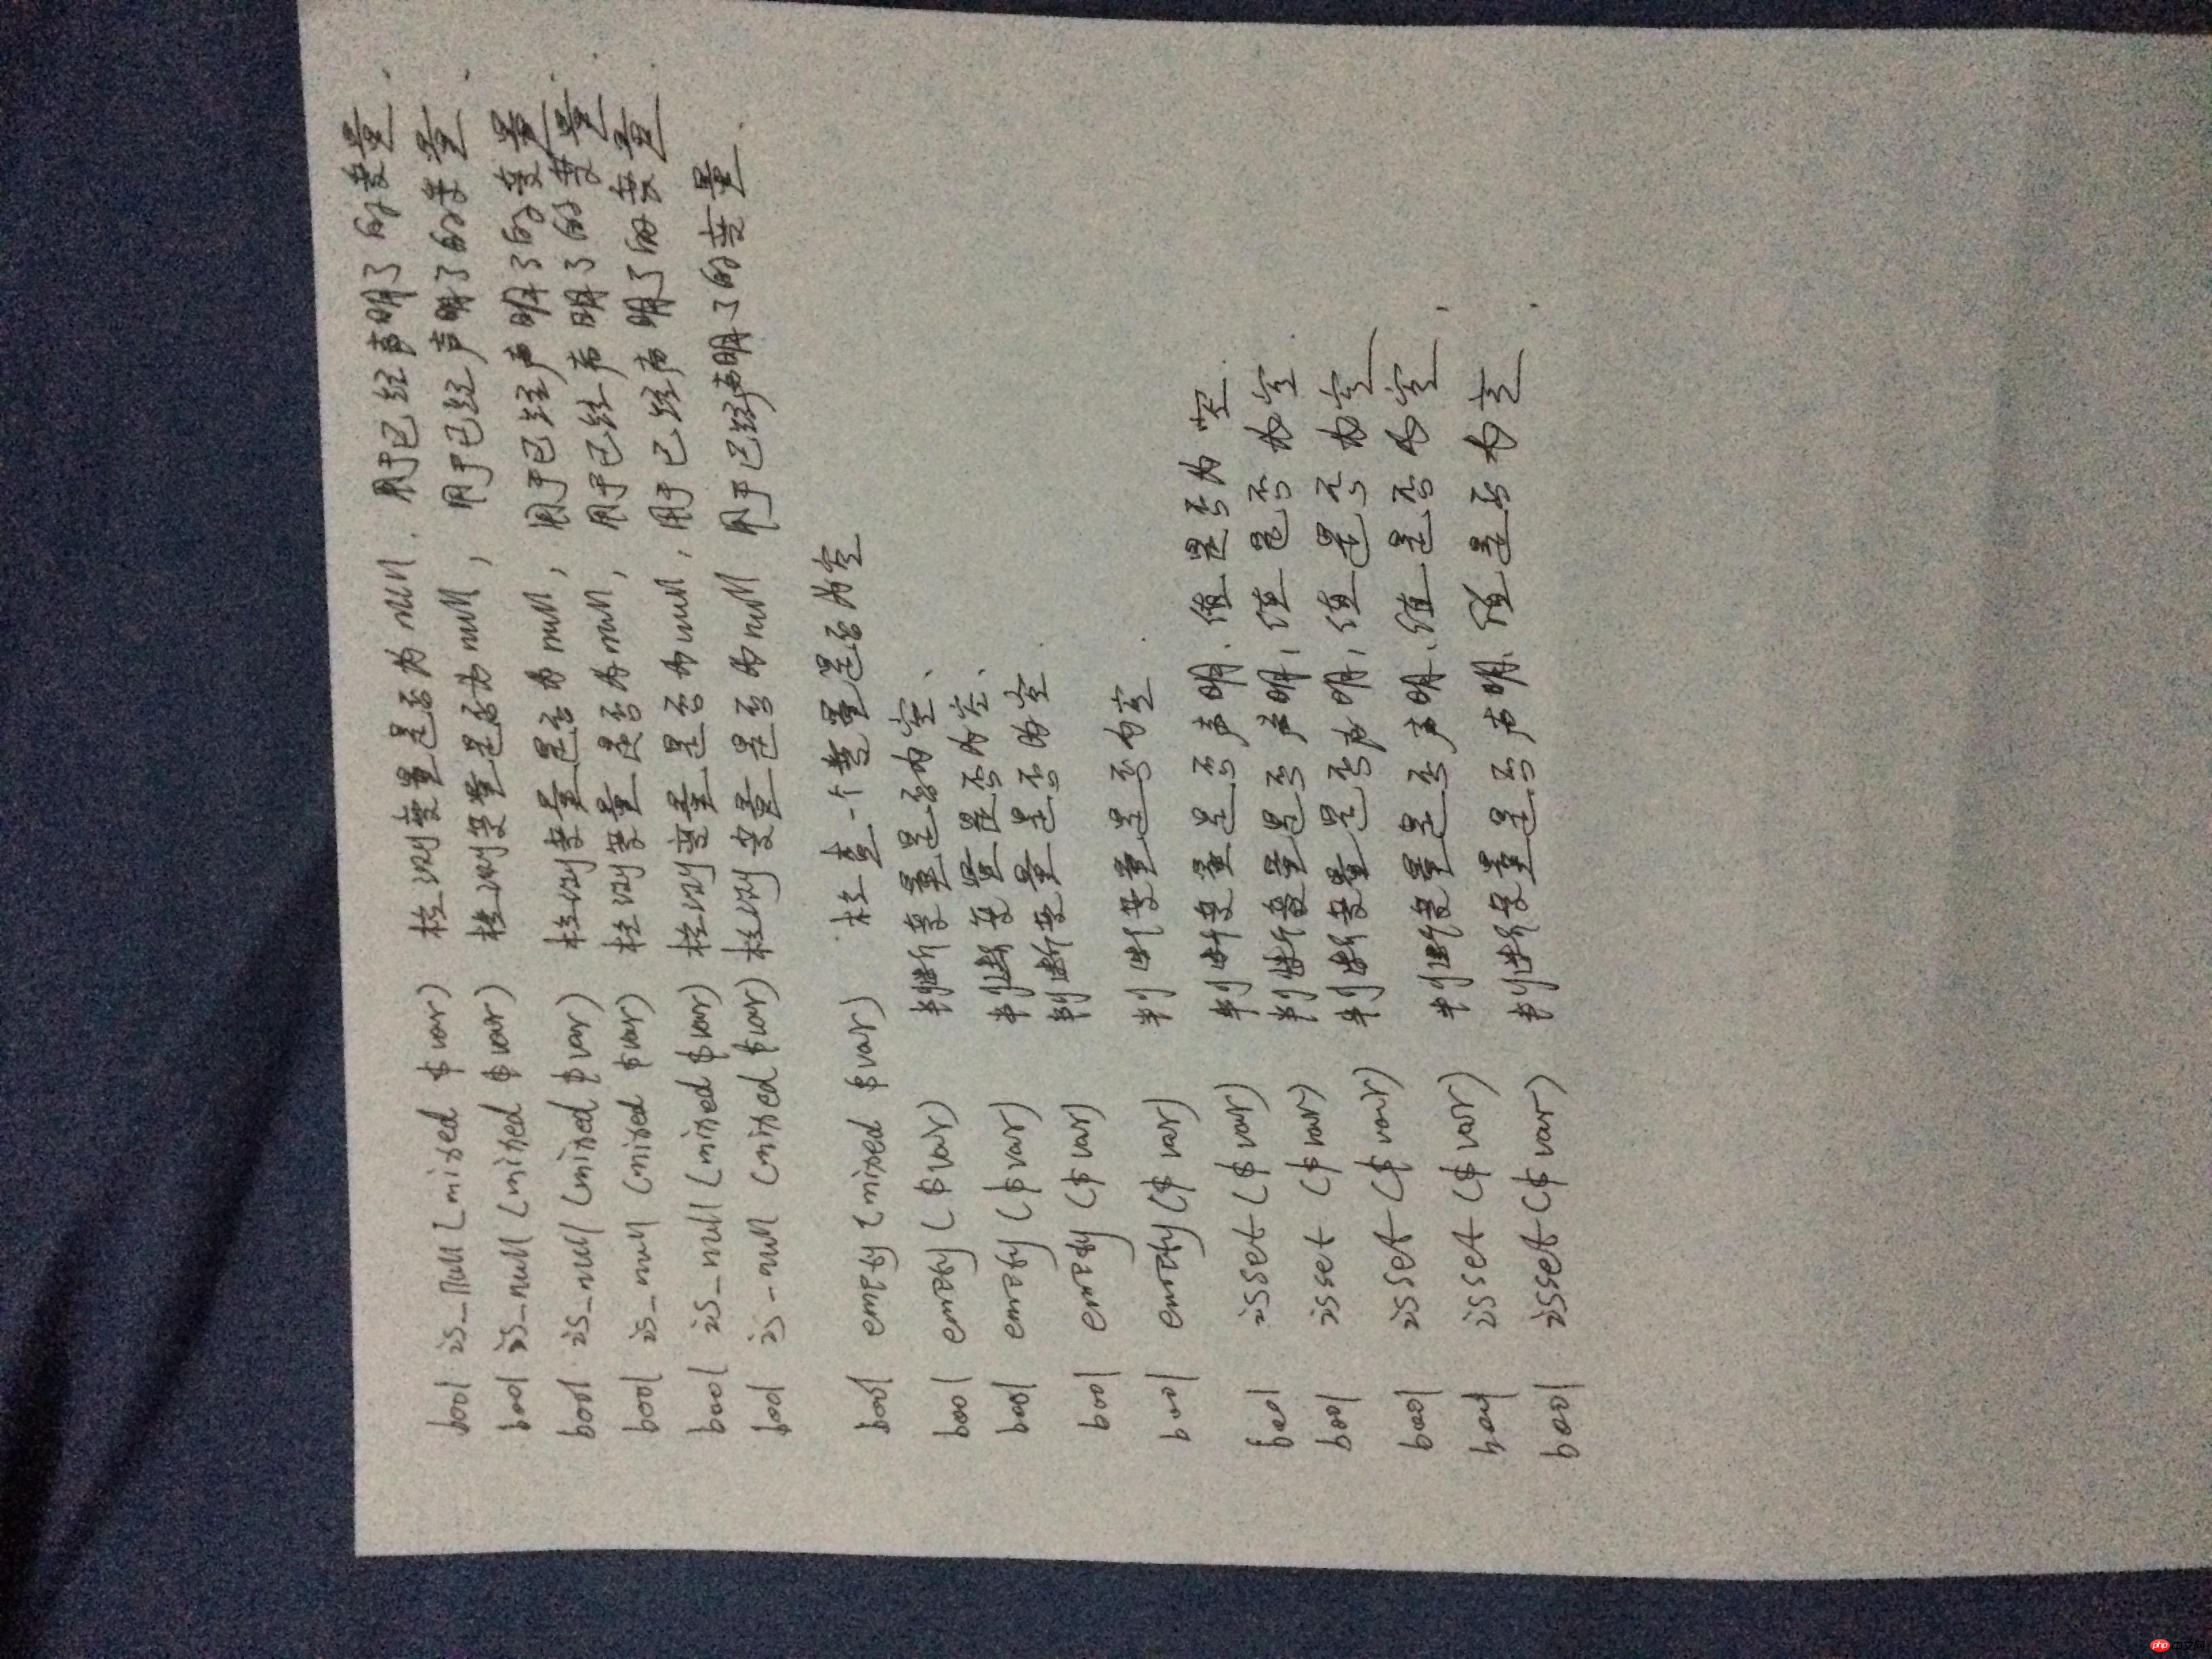 bool is_null (mixed $var) 检测变量是否为null. 用于已经声明了的变量.
bool is_null (mixed $var) 检测变量是否为null, 用于已经声明了的变量.
bool is_null (mixed $var) 检测变量是否为null, 用于已经声明了的变量.
bool is_null (mixed $var) 检测变量是否为null, 用于已经声明了的变量.
bool is_null (mixed $var) 检测变量是否为null, 用于已经声明了的变量.
bool is_null (mixed $var) 检测变量是否为null 用于已经声明了的变量.
bool empty (mixed $var) 检查一个变量是否为空
bool empty ($var) 判断变量是否为空.
bool empty ($var) 判断变量是否为空.
bool empty ($var) 判断变量是否为空.
bool empty ($var) 判断变量是否为空.
bool isset ($var) 判断变量是否声明, 值是否为空.
bool isset ($var) 判断变量是否声明, 值是否为空.
bool isset ($var) 判断变量是否声明, 值是否为空
bool isset ($var) 判断变量是否声明, 值是否为空.
bool isset ($var) 判断变量是否声明, 值是否为空.
php中文网